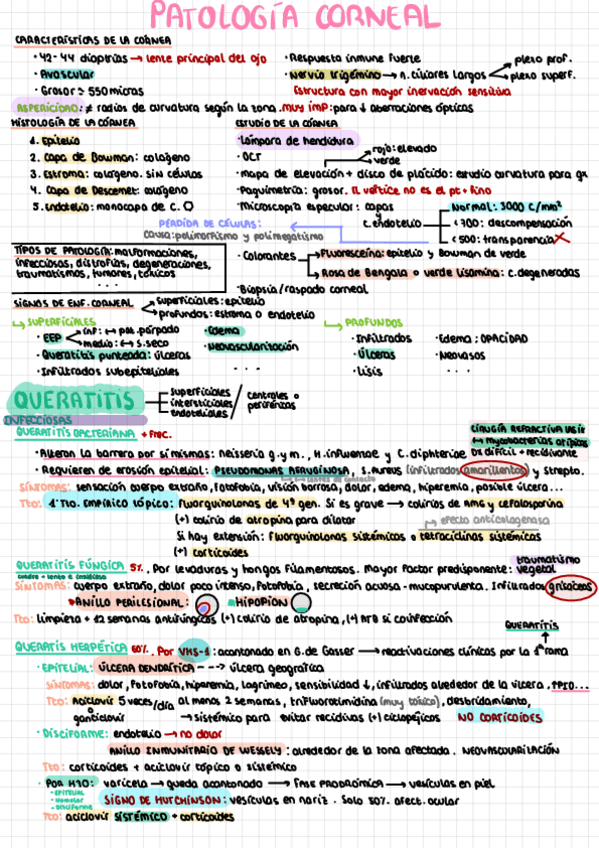 PATOLOGÍA CORNEAL
CARACTERÍSTICAS DE LA CÓRNEA
· 42-44 dioptrías → lente principal del ojo
· Avascular
· Grosor ≥ 550 micras
· Respuesta inmune fuerte
· Nervio trigémino → n. ciliares largos
plexo prof.
plexo superf.
Estructura con mayor inervación sensitiva
ASFERICIDAD: ≠ radios de curvatura según la zona. muy imp: para ↓ aberraciones ópticas
HISTOLOGÍA DE LA CÓRNEA
1. Epitelio
2. Capa de Bowman: colágeno
3. Estroma: colágeno. SIN CÉLULAS
4. Capa de Descemet: colágeno
5. Endotelio: monocapa de C.
ESTUDIO DE LA CÓRNEA
· Lámpara de hendidura
· OCT
rojo: elevado
verde
· mapa de elevación + disco de plácido: estudio curvatura para qx
· Paquimetría: grosor. El vértice no es el pt + fino
· Microscopia especular: capas
c. endotelio
Normal: 3000 C/mm²
< 700: descompensación
< 500: transparencia X
PÉRDIDA DE CÉLULAS:
causa: polimorfismo y polimegatismo
TIPOS DE PATOLOGÍA: malformaciones,
infecciosas, distrofias, degeneraciones,
traumatismos, tumores, tóxicos
...
· Colorantes
Fluoresceína: epitelio y Bowman de verde
Rosa de Bengala o verde lisamina: c. degeneradas
· Biopsia/raspado corneal
SIGNOS DE ENF. CORNEAL
superficiales: epitelio
profundos: estroma o endotelio
↳ SUPERFICIALES
· EEP
inf: ↔ pat. párpado
medio: ↔ s. seco
· Queratitis punteada: úlceras
· Infiltrados subepiteliales
· Edema
· Neovascularización
...
↳ PROFUNDOS
· Infiltrados
· Úlceras
· Lisis
· Edema: OPACIDAD
· Neovasos
...
QUERATITIS
superficiales
intersticiales
endoteliales
/ centrales o
periféricas
INFECCIOSAS
QUERATITIS BACTERIANA + FREC.
CIRUGÍA REFRACTIVA LASIK
↔ mycobacterias atípicas
Dx difícil + recidivante
· Alteran la barrera por sí mismas: neisseria g.y m., H. influenzae y C. diphteriae
· Requieren de erosión epitelial: PSEUDOMONAS AERUGINOSA, S. aureus (infiltrados amarillentos) y strepto.
↔ lentes de contacto
SÍNTOMAS: sensación cuerpo extraño, fotofobia, visión borrosa, dolor, edema, hiperemia, posible úlcera...
Tto: 1º Tto. EMPÍRICO TÓPICO: Fluorquinolonas de 4ª gen. Si es grave → colirios de AMG y cefalosporina
(+) colirio de atropina para dilatar
efecto anticolagenasa
Si hay extensión: Fluorquinolonas sistémicos o tetraciclinas sistémicos
(+) corticoides
traumatismo
QUERATITIS FÚNGICA 5%. Por levaduras y hongos filamentosos. Mayor factor predisponente: vegetal
cuadro + lento e insidioso
SÍNTOMAS: cuerpo extraño, dolor poco intenso, fotofobia, secreción acuosa - mucopurulenta. Infiltrados grisáceos
· ANILLO PERILESIONAL:
· HIPOPION
Tto: limpieza + 12 semanas antifúngicos (+) colirio de atropina, (+) ATB si coinfección
QUERATITIS
QUERATIS HERPÉTICA 60%. Por VHS-1: acantonado en G. de Gasser → reactivaciones clínicas por la 1ª rama
· EPITELIAL: ÚLCERA DENDRÍTICA ---→ úlcera geográfica
SÍNTOMAS: dolor, fotofobia, hiperemia, lagrimeo, sensibilidad ↓, infiltrados alrededor de la úlcera, ↑PIO...
Tto: Aciclovir 5 veces/día al menos 2 semanas, trifluorotimidina (muy tóxico), desbridamiento,
ganciclovir → sistémico para evitar recidivas (+) ciclopéjicos NO CORTICOIDES
· DISCIFORME: endotelio → no dolor
ANILLO INMUNITARIO DE WESSELY: alrededor de la zona afectada. NEOVASCULARIZACIÓN
Tto: corticoides + aciclovir tópico o sistémico
· POR HZO: varicela → queda acantonado → FASE PRODRÓMICA → vesículas en piel
· EPITELIAL
· Numular
· Disciforme
SIGNO DE HUTCHINSON: vesículas en nariz. Solo 50% afect. ocular
Tto: aciclovir SISTÉMICO + corticoides